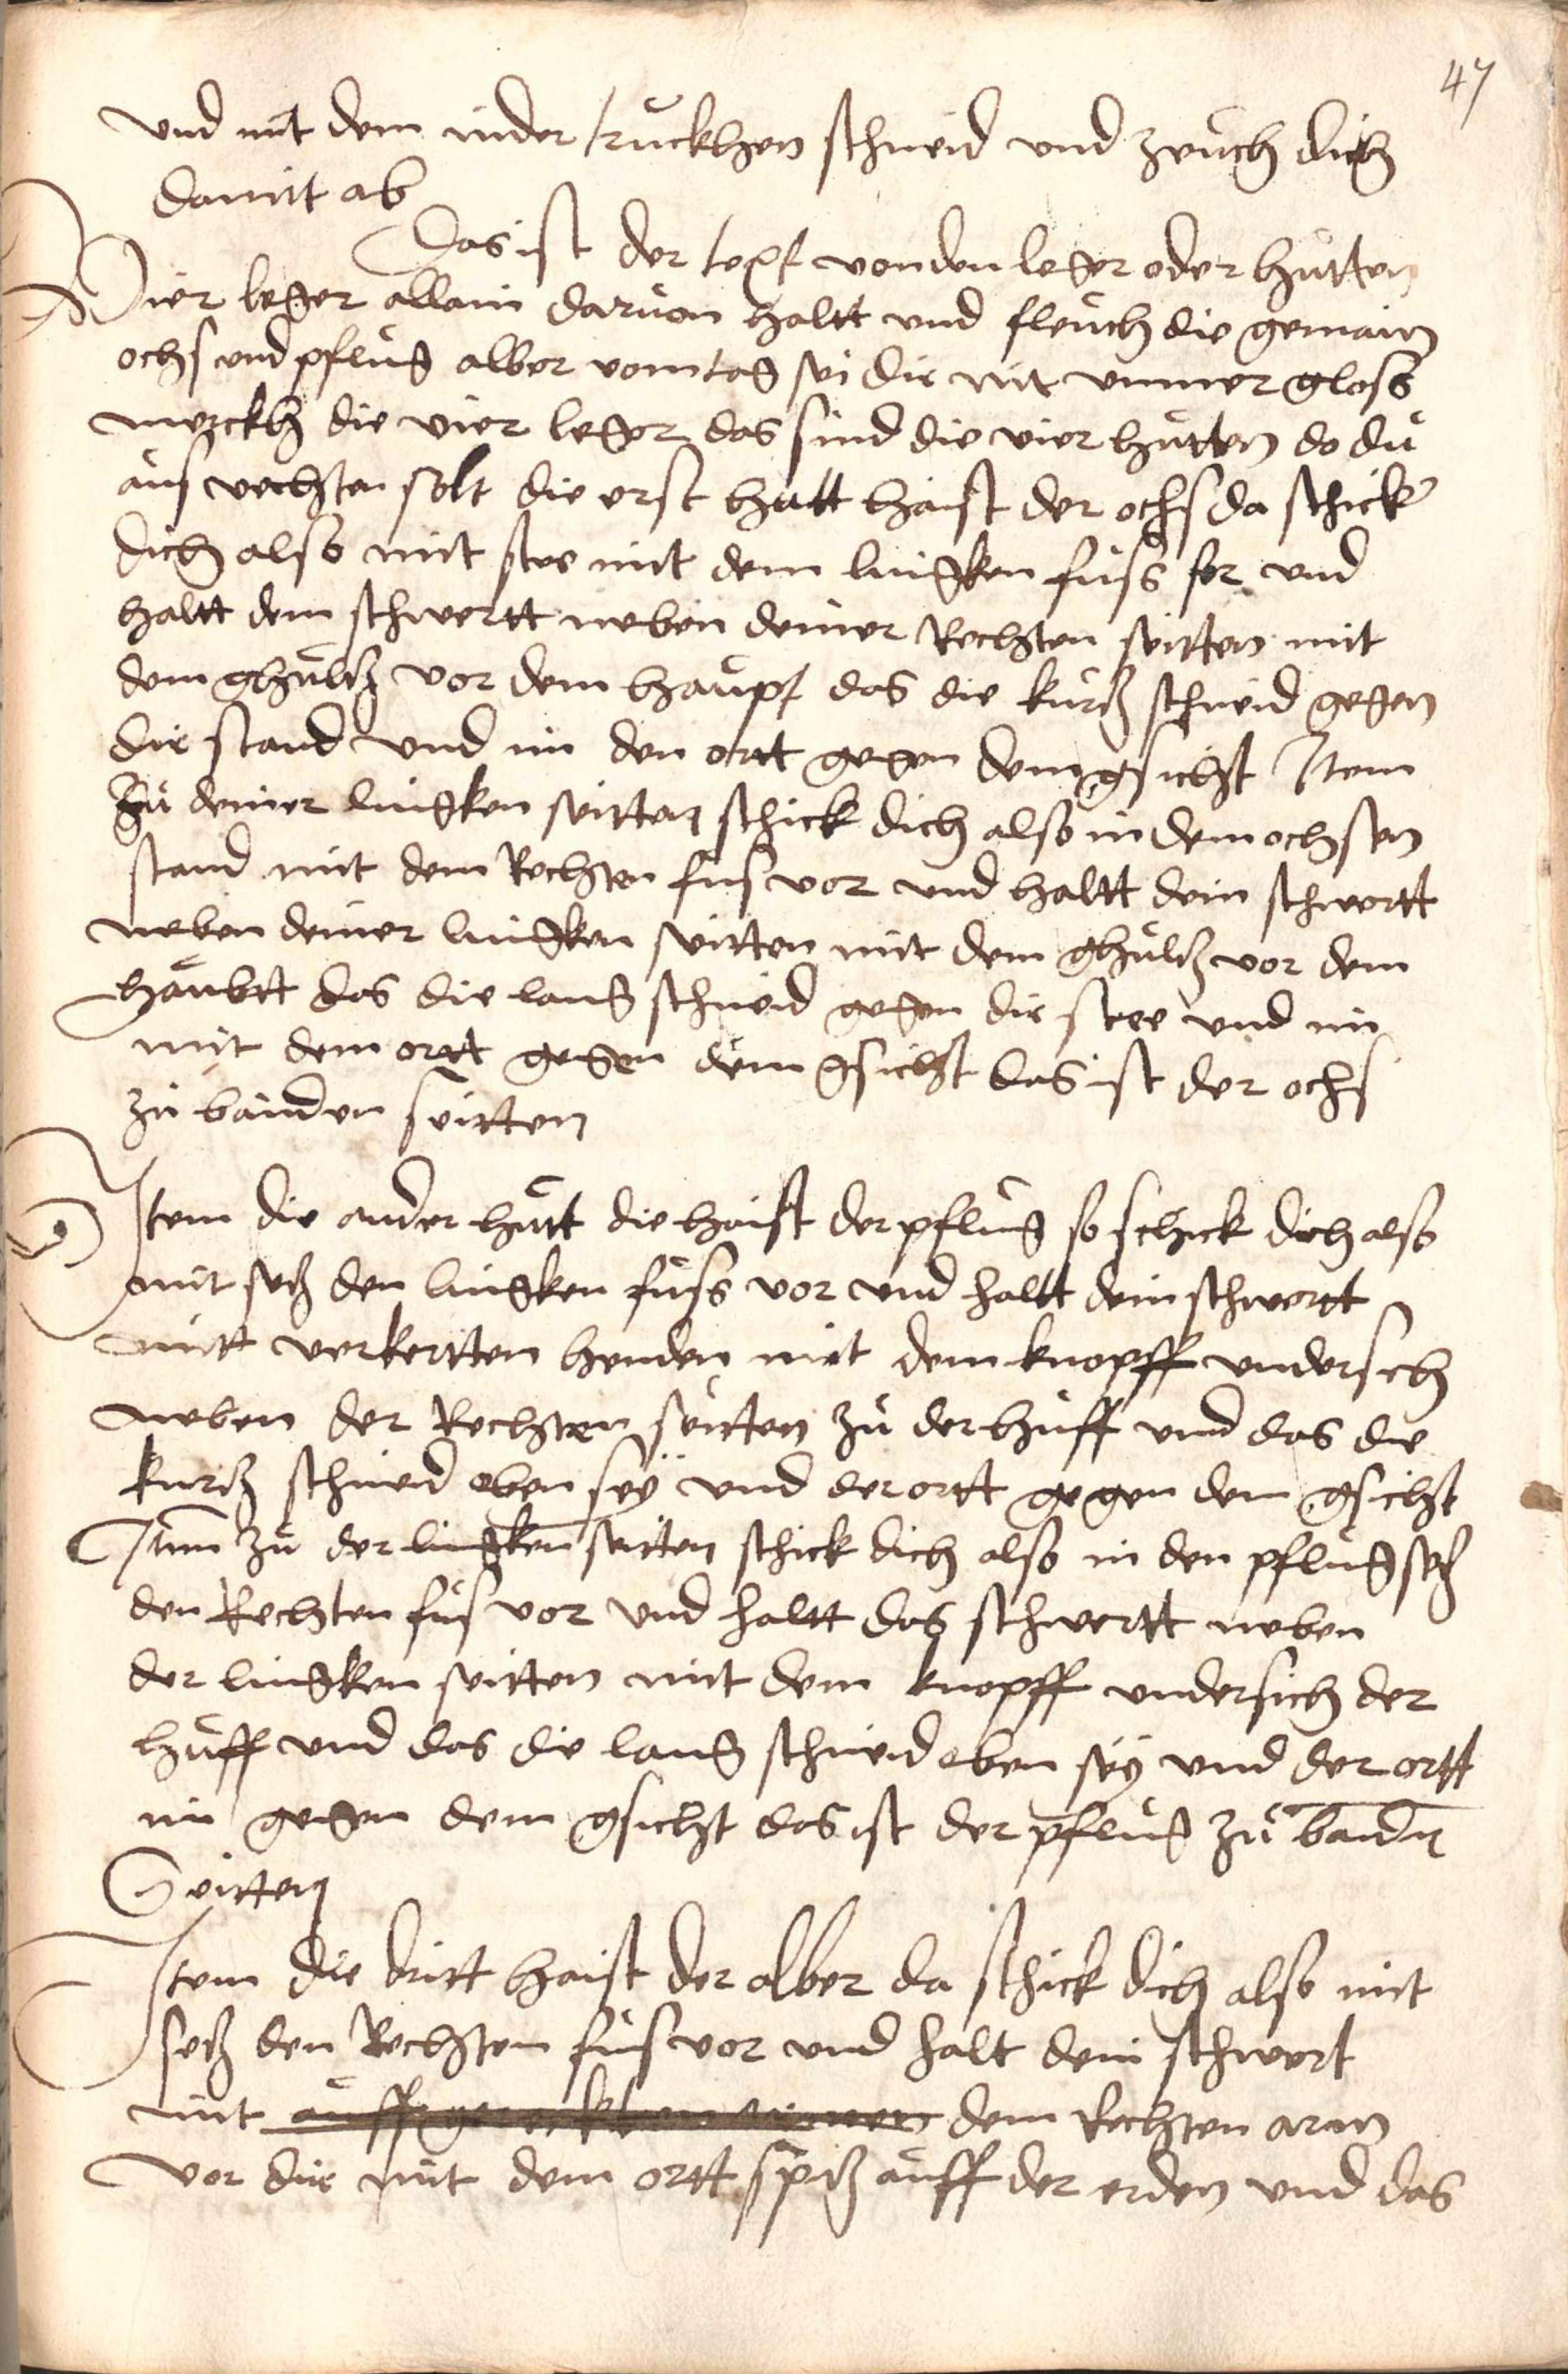 47
vnd mit dem inder truckhen schneid vnd zeuch dich
damit ab
Das ist der text von den leger oder hutten
Vier leger allain daruon haltt vnd fleuch die gemain
ochs vnd pflug alber vom tag sei dir nit vnmer gloss
merckh die vier leger das sind die vier hutten do du
aus vechten solt die erst hutt haist der ochs da schick
dich also mit stee mit dem lingken fuss for vnd
haltt dem schwertt neben deiner Rechten seitten mit
dem ghultz vor dem haupt das die kurtz schneid gegen
dir stand vnd im den ortt gegen dem gsicht Item
zu deiner lingken seitten schick dich also in dem ochsen
stand mit dem Rechten fus vor vnd haltt dein schwertt
neben deiner lingken seitten mit dem ghultz vor dem
haubtt das die lang schneid gegen dir stee vnd im
mit dem ortt gegen dem gsicht das ist der ochs
zu bainden seitten
Item die ander hutt die haist der pflug so schick dich also
mit setz den lingken fuss vor vnd haltt dein schwertt
mitt verkertten henden mit dem knopff vndersich
neben der Rechten seitten zu der huff vnd das die
kurtz schneid oben sey vnd der ortt gegen dem gsicht
Item zu der lingken seitten schick dich also in den pflug setz
den Rechten fus vor vnd haltt das schwertt neben
der lingken seitten mit dem knopff vndersich der
huff vnd das die lang schneid oben sey vnd der ortt
im gegen dem gsicht das ist der pflug zu baiden
Seitten
Item die dritt haist der alber da schick dich also mit
setz den Rechten fus vor vnd halt dein schwert
mit auffgereckten armen dem Rechten arm
vor dir mit dem ortt spitz auff der erden vnd das